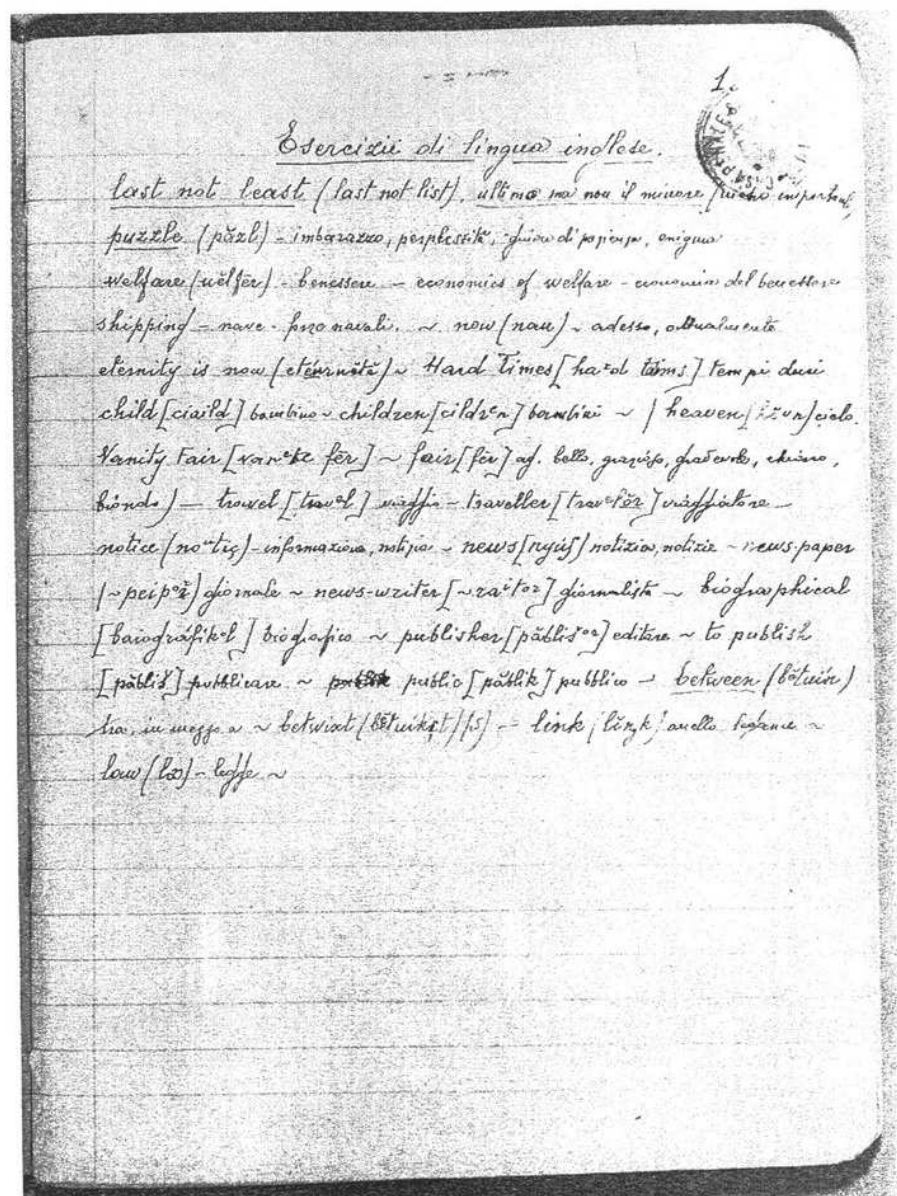 1.
Esercizii di lingua inglese.
last not least (last not list), ultimo ma non il minore (meno important
puzzle (păzl) - imbarazzo, perplessità, giuoco di pazienza, enigma
welfare (uĕlfēr) - benessere - economics of welfare - economia del benessere
shipping - nave - forze navali. ~ now (nau) ~ adesso, attualmente
eternity is now ~ Hard Times [haᵉd tāims] tempi duri
child [ciaild] bambino ~ children [cildrᵉn] bambini ~ heaven cielo.
Vanity Fair fēr] ~ fair [fēr] ag. bello, grazioso, gradevole, chiaro,
biondo) — travel [travᵉl] viaggio - traveller viaggiatore —
notice (noᵘtiç) - informazione, notizia - news [nyūs] notizia, notizie ~ news-paper
[~ peipᵉr̆] giornale ~ news-writer [~ raiᵗtᵒr] giornalista ~ biographical
[baiográfikᵉl] biografico ~ publisher [păbliš°ʳ] editore ~ to publish
[păbliš] pubblicare ~ public [păblik] pubblico — between (bĕtuīn)
tra, in mezzo a ~ betwixt (bĕtuikst) (s) — link anello legame ~
law (lōō) - legge ~